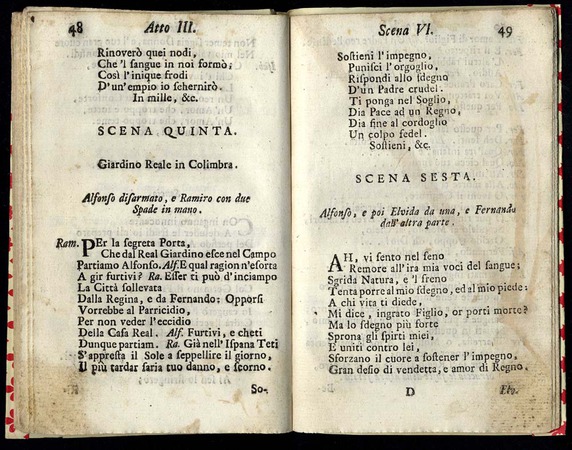 48 Atto III.
Rinoverò quei nodi,
Che 'l sangue in noi formò;
Così l'inique frodi
D'un'empio io schernirò.
In mille, &c.
SCENA QUINTA.
Giardino Reale in Colimbra.
Alfonso disarmato, e Ramiro con due
Spade in mano.
Ram. PEr la segreta Porta,
Che dal Real Giardino esce nel Campo
Partiamo Alfonso. Alf. E qual ragion n'esorta
A gir furtivi? Ra. Esser ti può d'inciampo
La Città sollevata
Dalla Regina, e da Fernando: Opporsi
Vorrebbe al Parricidio,
Per non veder l'eccidio
Della Casa Real. Alf. Furtivi, e cheti
Dunque partiam. Ra. Già nell'Ispana Teti
S'appresta il Sole a seppellire il giorno,
Il più tardar saria tuo danno, e scorno.
So-
Scena VI. 49
Sostieni l'impegno,
Punisci l'orgoglio,
Rispondi allo sdegno
D'un Padre crudel.
Ti ponga nel Soglio,
Dia Pace ad un Regno,
Dia fine al cordoglio
Un colpo fedel.
Sostieni, &c.
SCENA SESTA.
Alfonso, e poi Elvida da una, e Fernando
dall'altra parte.
AH, vi sento nel seno
Remore all'ira mia voci del sangue;
Sgrida Natura, e 'l freno
Tenta porre al mio sdegno, ed al mio piede:
A chi vita ti diede,
Mi dice, ingrato Figlio, or porti morte?
Ma lo sdegno più forte
Sprona gli spirti miei,
E uniti contro lei,
Sforzano il cuore a sostener l'impegno,
Gran desio di vendetta, e amor di Regno.
D Elv.